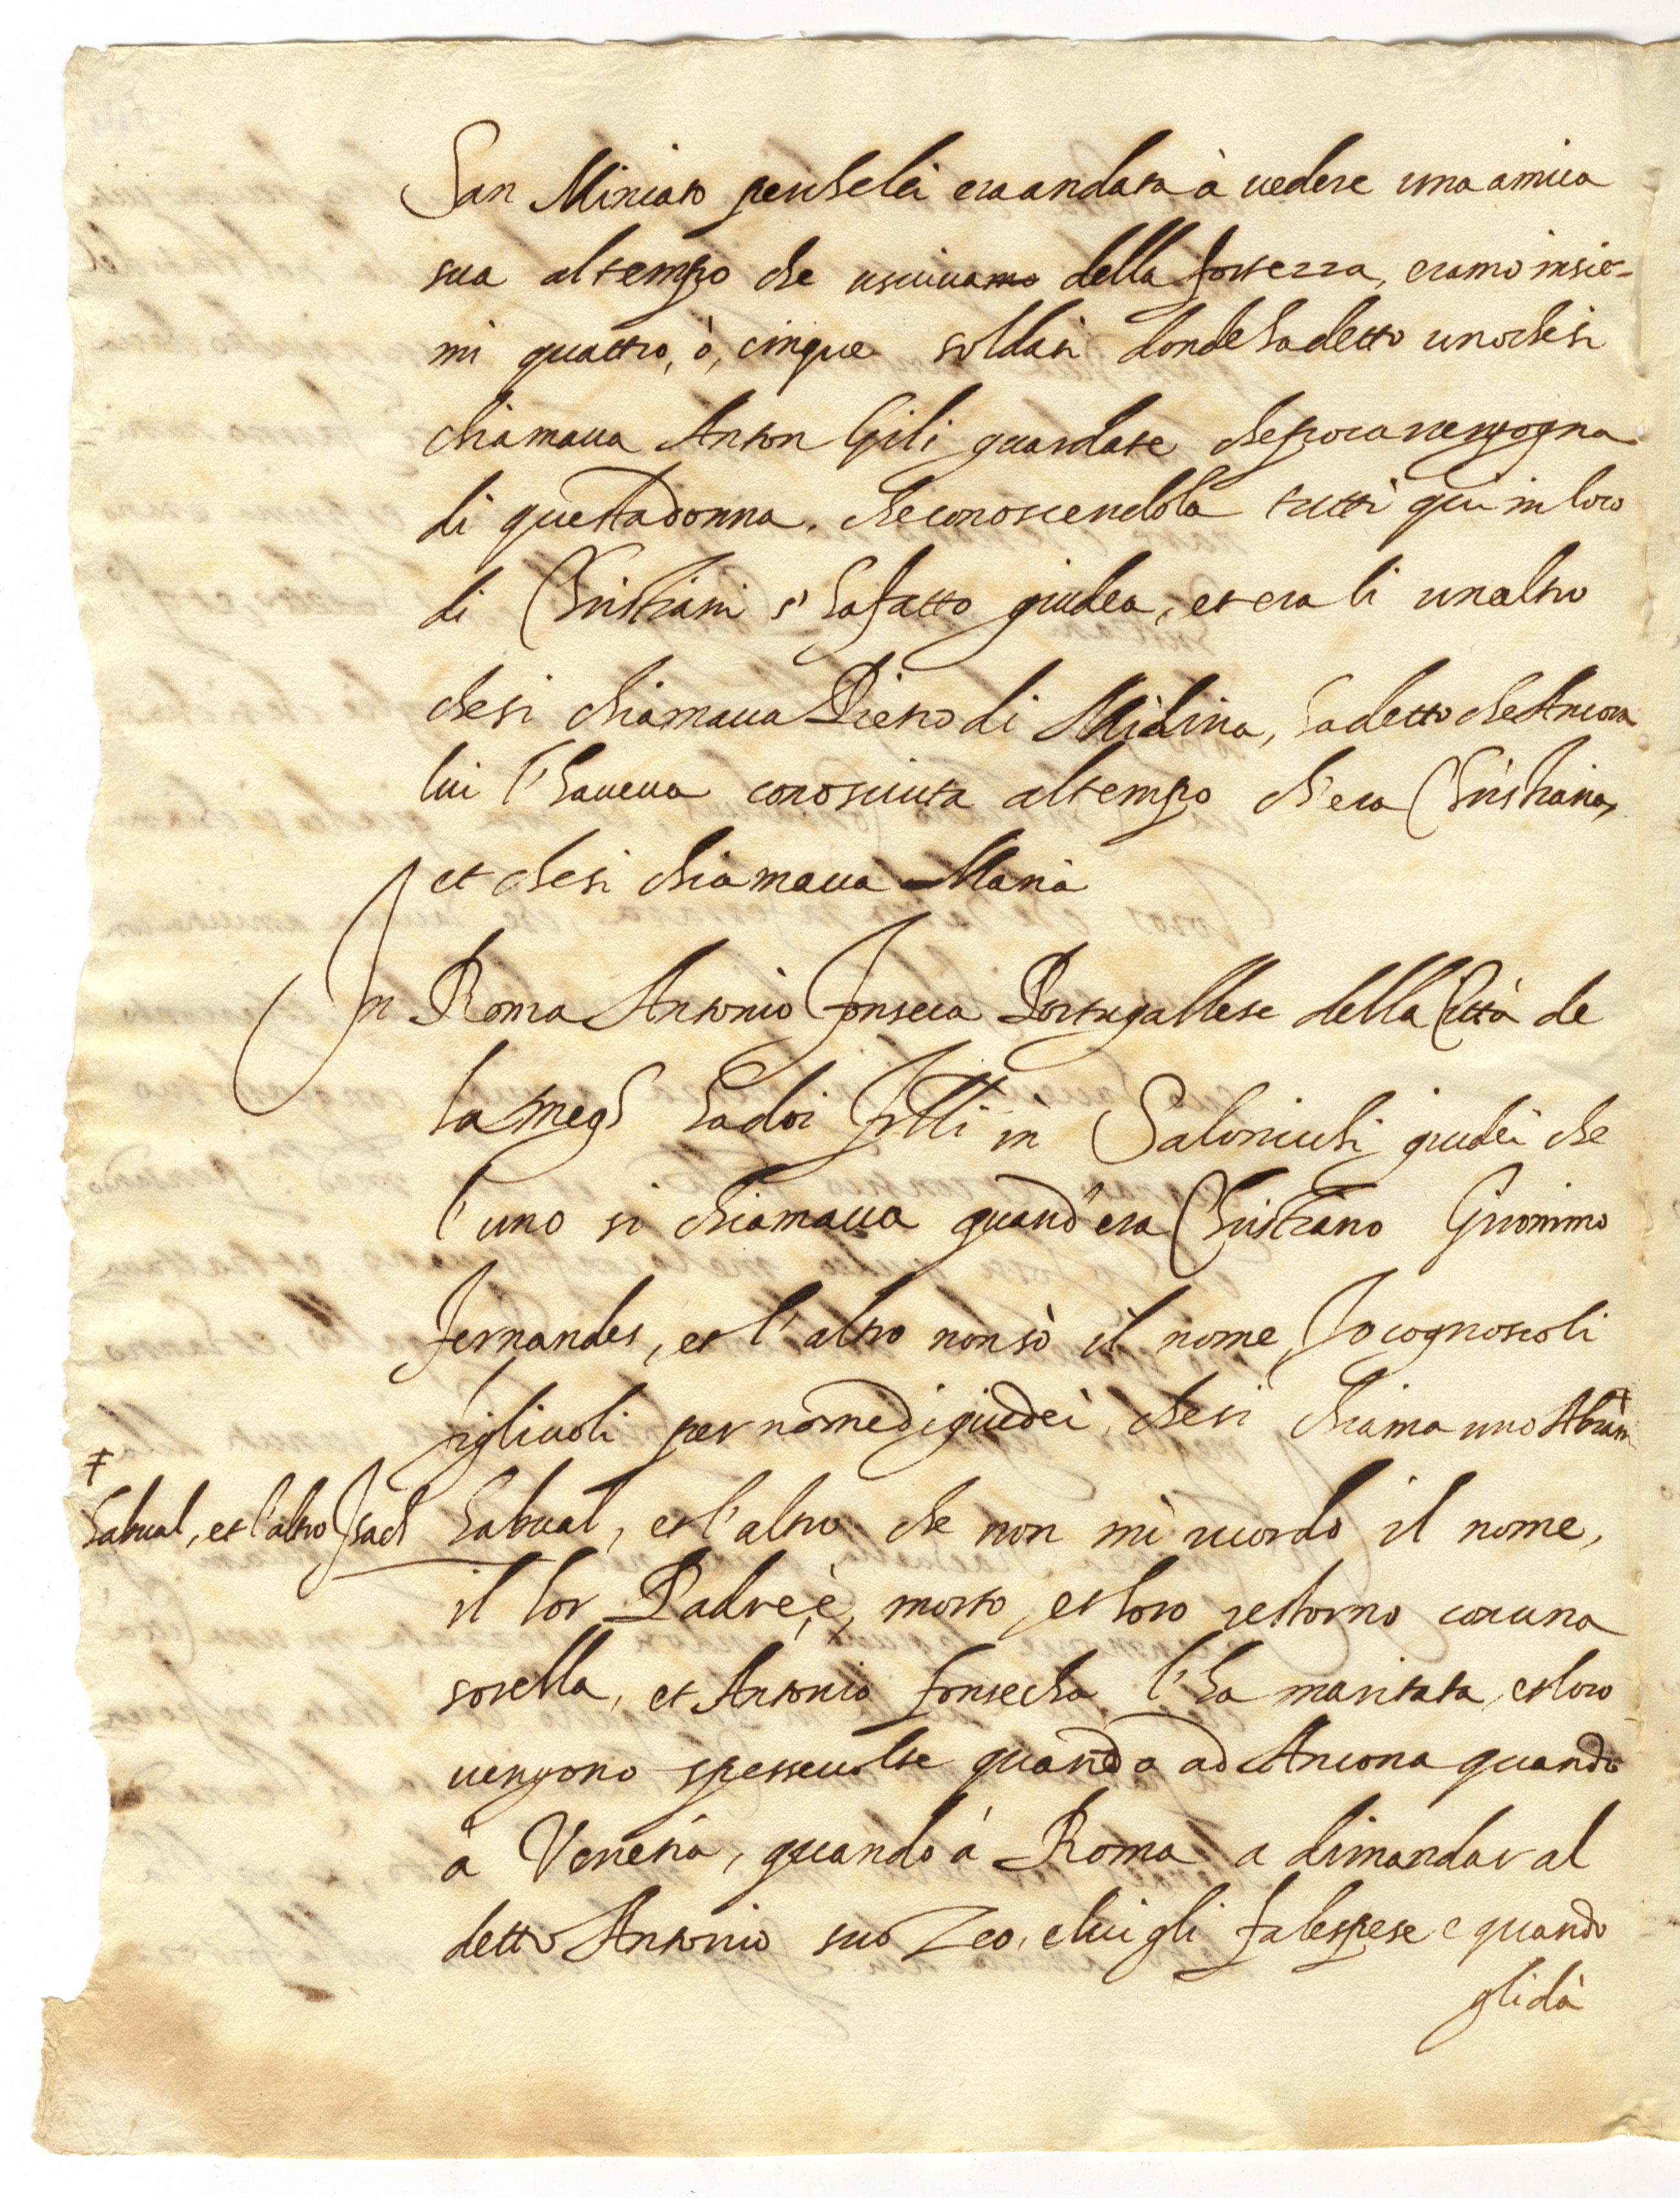 San Miniato perche lei era andata à uedere una amica
sua al tempo che usciuamo della fortezza, eramo insie-
mi quattro, ò, cinque soldati donde ha detto uno che si
chiamaua Anton Gili guardate che poca uergogna
di questa donna, che conoscendola tutti qui in loco
di Christiani s'ha fatto giudea, et era li un altro
che si chiamaua Pietro di Midina, ha detto che Ancora
lui l'haueua conosciuta al tempo ch'era Christiana,
et che si chiamaua Maria
In Roma Antonio Fonseca Portugallese della Città de
Lamego ha doi frlli in Salonichi giudei che
l'uno si chiamaua quand'era Christiano Gironimo
Fernandes, et l'altro non sò il nome, Io cognosco li
figliuoli per nome di giudei, che si chiama uno Abram
‡
Habual, et l'altro Isach
Habual, et l'altro che non mi ricordo il nome,
il lor Padre, è, morto, et loro restorno con una
sorella, et Antonio fonsecha l'ha maritata, et loro
uengono spesse uolte quando ad Ancona quando
à Venetia, quando à Roma a dimandar al
detto Antonio suo Zeo, e lui gli fa le spese e quando
gli dà